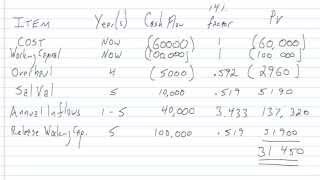 14%
ITEM Year(s) Cash Flow factor PV
COST Now (60000) 1 (60,000)
Working Capital Now (100,000) 1 (100 000)
Overhaul 4 (5000) .592 (2960)
Sal Val 5 10,000 .519 5190
Annual Inflows 1-5 40,000 3.433 137,320
Release Working Cap. 5 100,000 .519 51900
31 450